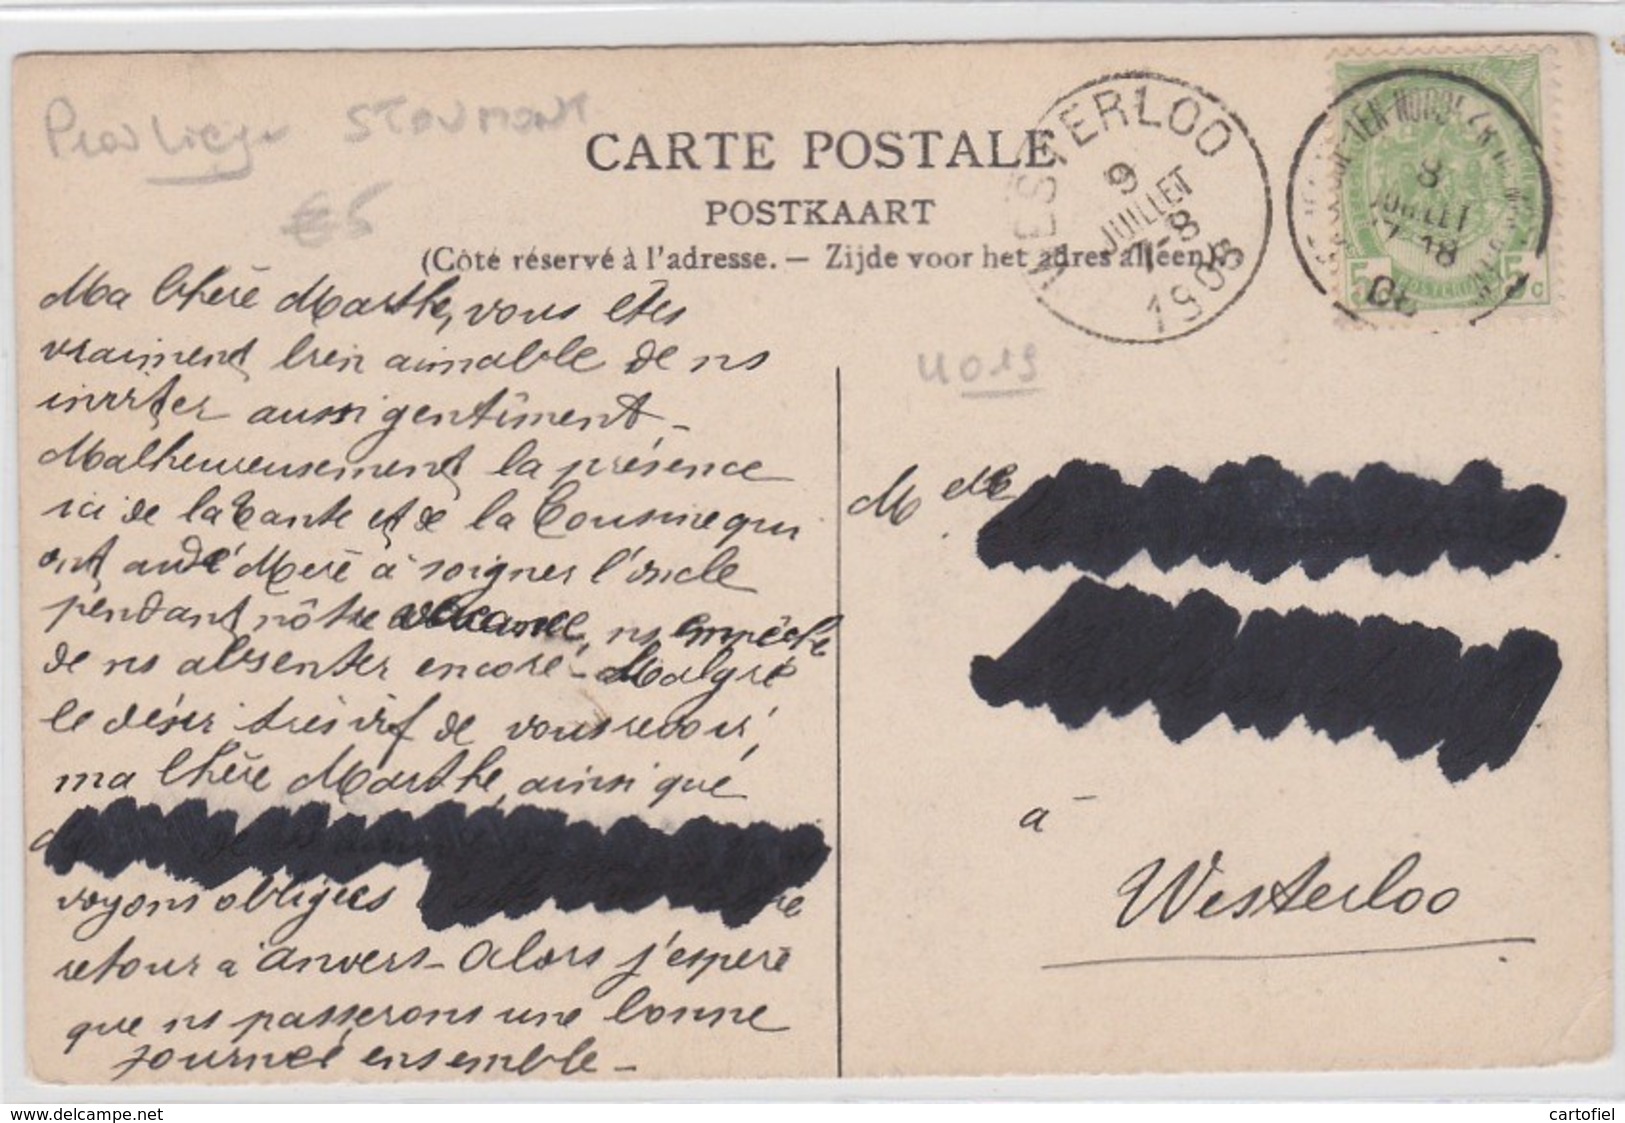 Prov Liege STOUMONT
€5
CARTE POSTALE
POSTKAART
(Côté réservé à l'adresse. — Zijde voor het adres alleen)
WESTERLOO
9
JUILLET
7-8
1908
8
JUILLET
17-18
5 5 c
4019
Ma Chère Marthe, vous êtes
vraiment bien aimable de ns
inviter aussi gentiment –
Malheureusement la présence
ici de la Tante et de la Cousine qui
ont aidé Mère à soigner l'oncle
pendant nôtre, ns empêche
de ns absenter encore – Malgré
le désir très vif de vous revoir,
ma Chère Marthe, ainsi que
voyons obligées
retour à Anvers – Alors j'espère
que ns passerons une bonne
journée ensemble –
M
à
Westerloo
www.delcampe.net
cartofiel